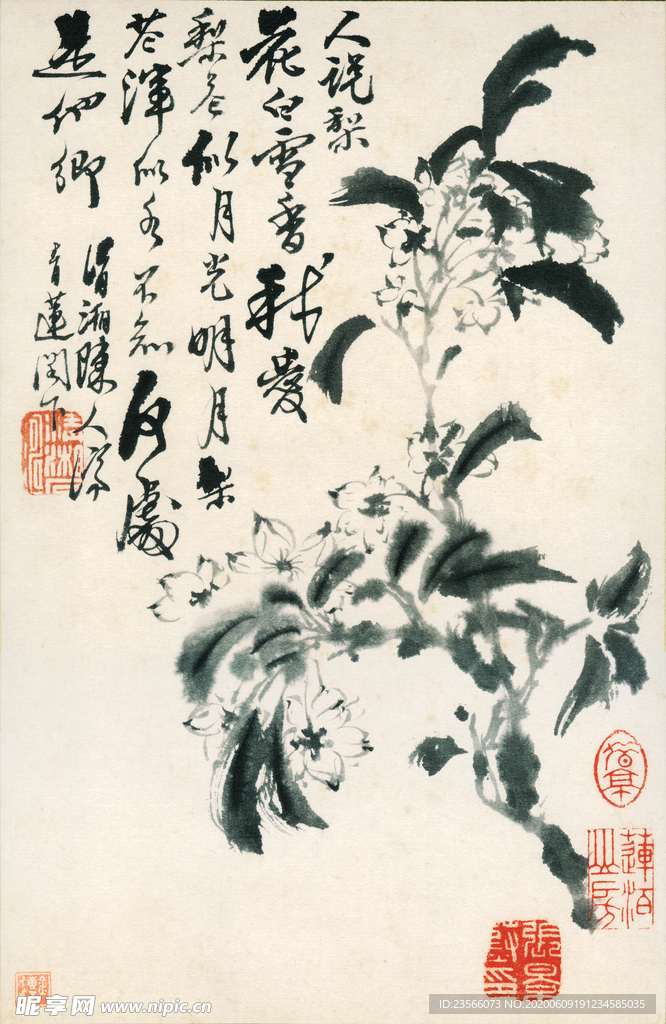 人說梨
花白雪香我愛
梨花似月光明月梨
花渾似水不知何處
是他鄉
清湘陳人濟
青蓮閣下
昵享网 www.nipic.cn
ID:23566073 NO:20200609191234585035